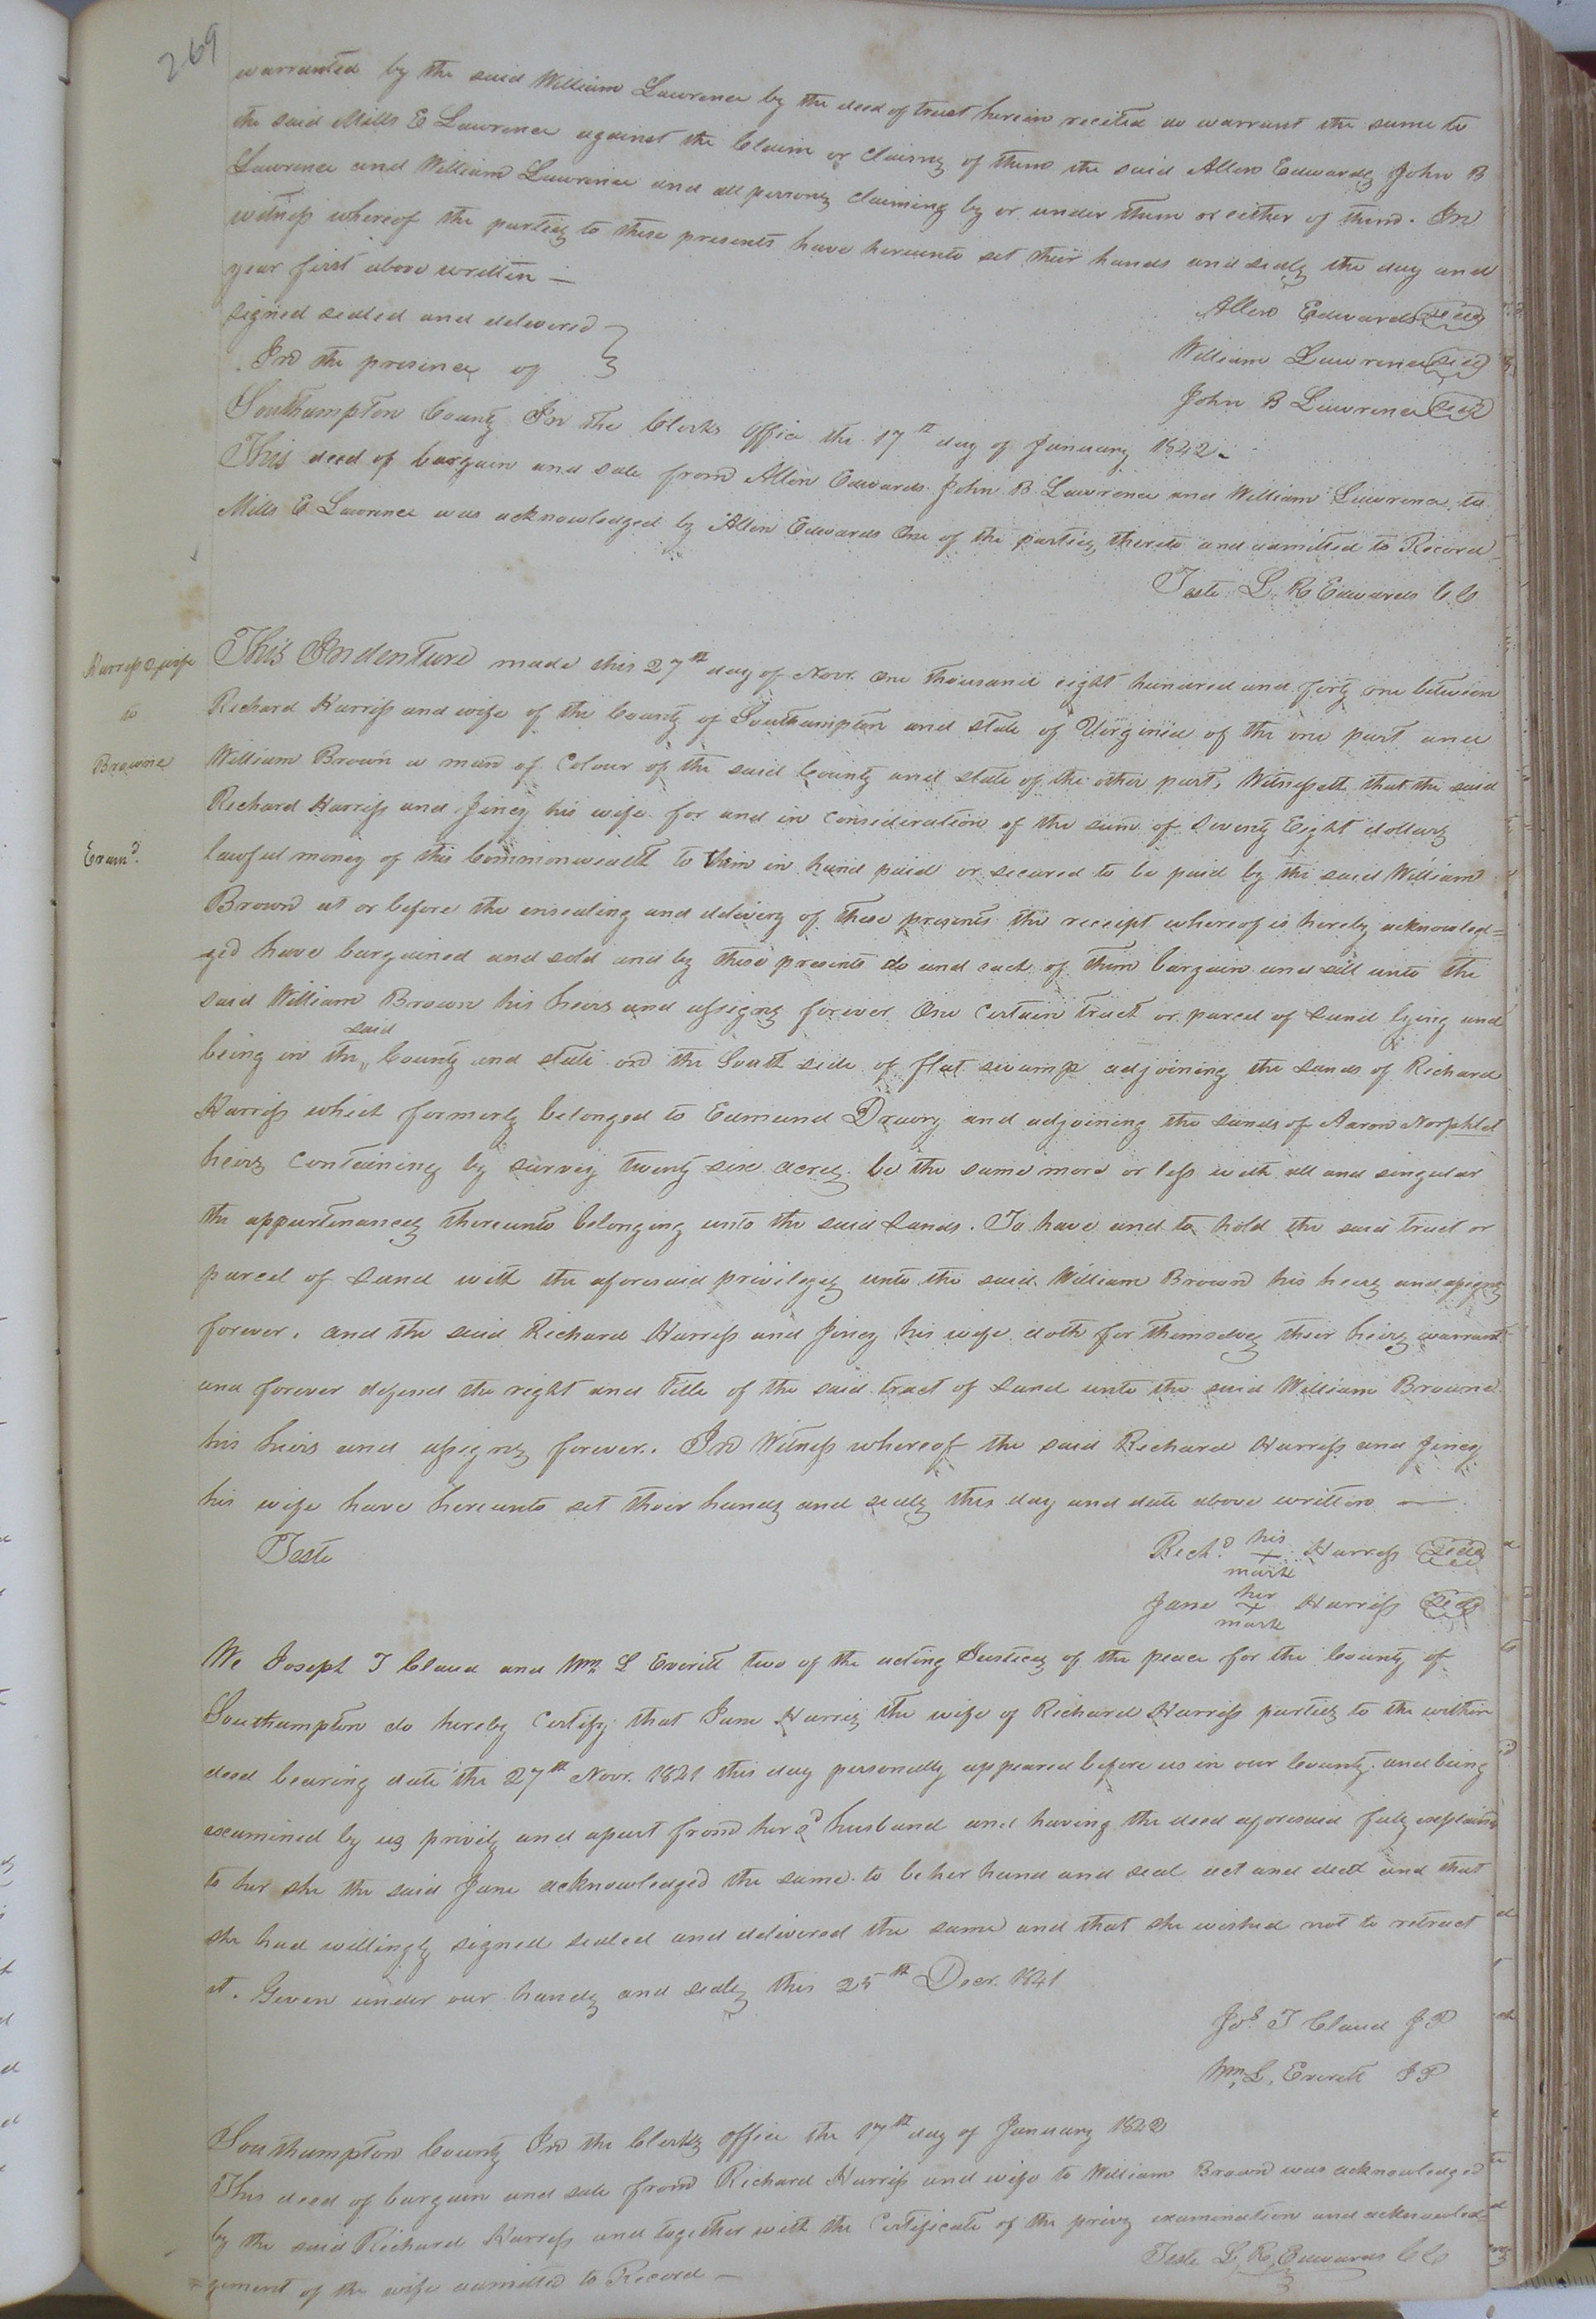 269
warranted by the said William Lawrence by the deed of trust herein recited do warrant the same to
the said Mills E Lawrence against the Claim or Claims of them the said Allen Edwards John B
Lawrence and William Lawrence and all persons Claiming by or under them or either of them. In
witness whereof the parties to these presents have hereunto set their hands and seals the day and
year first above written —
signed sealed and delivered
In the presence of
Allen Edwards seal
William Lawrence seal
John B Lawrence seal
Southampton County In the Clerks Office the 17th day of January 1842.
This deed of bargain and sale from Allen Edwards John B Lawrence and William Lawrence to
Mills E Lawrence was acknowledged by Allen Edwards One of the parties thereto and admitted to Record
Teste L R Edwards CC
Harriss & wife
to
Browne
Examd.
This Indenture made this 27th day of Novr. One thousand eight hundred and forty one between
Richard Harriss and wife of the County of Southampton and state of Virginia of the one part and
William Brown a man of Colour of the said County and state of the other part, Witnesseth that the said
Richard Harriss and Jincy his wife for and in Consideration of the sum of Seventy Eight dollars
lawful money of this Commonwealth to them in hand paid or secured to be paid by the said William
Brown at or before the ensealing and delivery of these presents the receipt whereof is hereby acknowled=
ged have bargained and sold and by these presents do and each of them bargain and sell unto the
said William Brown his heirs and assigns forever One Certain tract or parcel of Land lying and
being in the said County and state on the South side of flat swamp adjoining the Lands of Richard
Harriss which formerly belonged to Edmund Drewry and adjoining the Lands of Aaron Norphlet
heirs Containing by survey twenty six acres be the same more or less with all and singular
the appurtenances thereunto belonging unto the said Lands. To have and to hold the said tract or
parcel of Land with the aforesaid privileges unto the said William Brown his heirs and assigns
forever. and the said Richard Harriss and Jincy his wife doth for themselves their heirs warrant
and forever defend the right and Title of the said tract of Land unto the said William Browne
his heirs and assigns forever. In Witness whereof the said Richard Harriss and Jincy
his wife have hereunto set their hands and seals this day and date above written —
Teste
Richd. his X mark Harriss seal
Jane her X mark Harriss seal
We Joseph T Claud and Wm L Everitt two of the acting Justices of the peace for the County of
Southampton do hereby Certify that Jane Harris the wife of Richard Harriss parties to the within
deed bearing date the 27th Novr. 1841 this day personally appeared before us in our County and being
examined by us privily and apart from her sd husband and having the deed aforesaid fully explained
to her she the said Jane acknowledged the same to be her hand and seal act and deed and that
she had willingly signed sealed and delivered the same and that she wished not to retract
it. Given under our hands and seals this 25th Decr. 1841
Jos T Claud JP
Wm. L. Everett JP
Southampton County In the Clerks office the 17th day of January 1842
This deed of bargain and sale from Richard Harriss and wife to William Brown was acknowledged
by the said Richard Harriss and together with the Certificate of the privy examination and acknowled-
=gement of the wife admitted to Record —
Teste L R Edwards CC